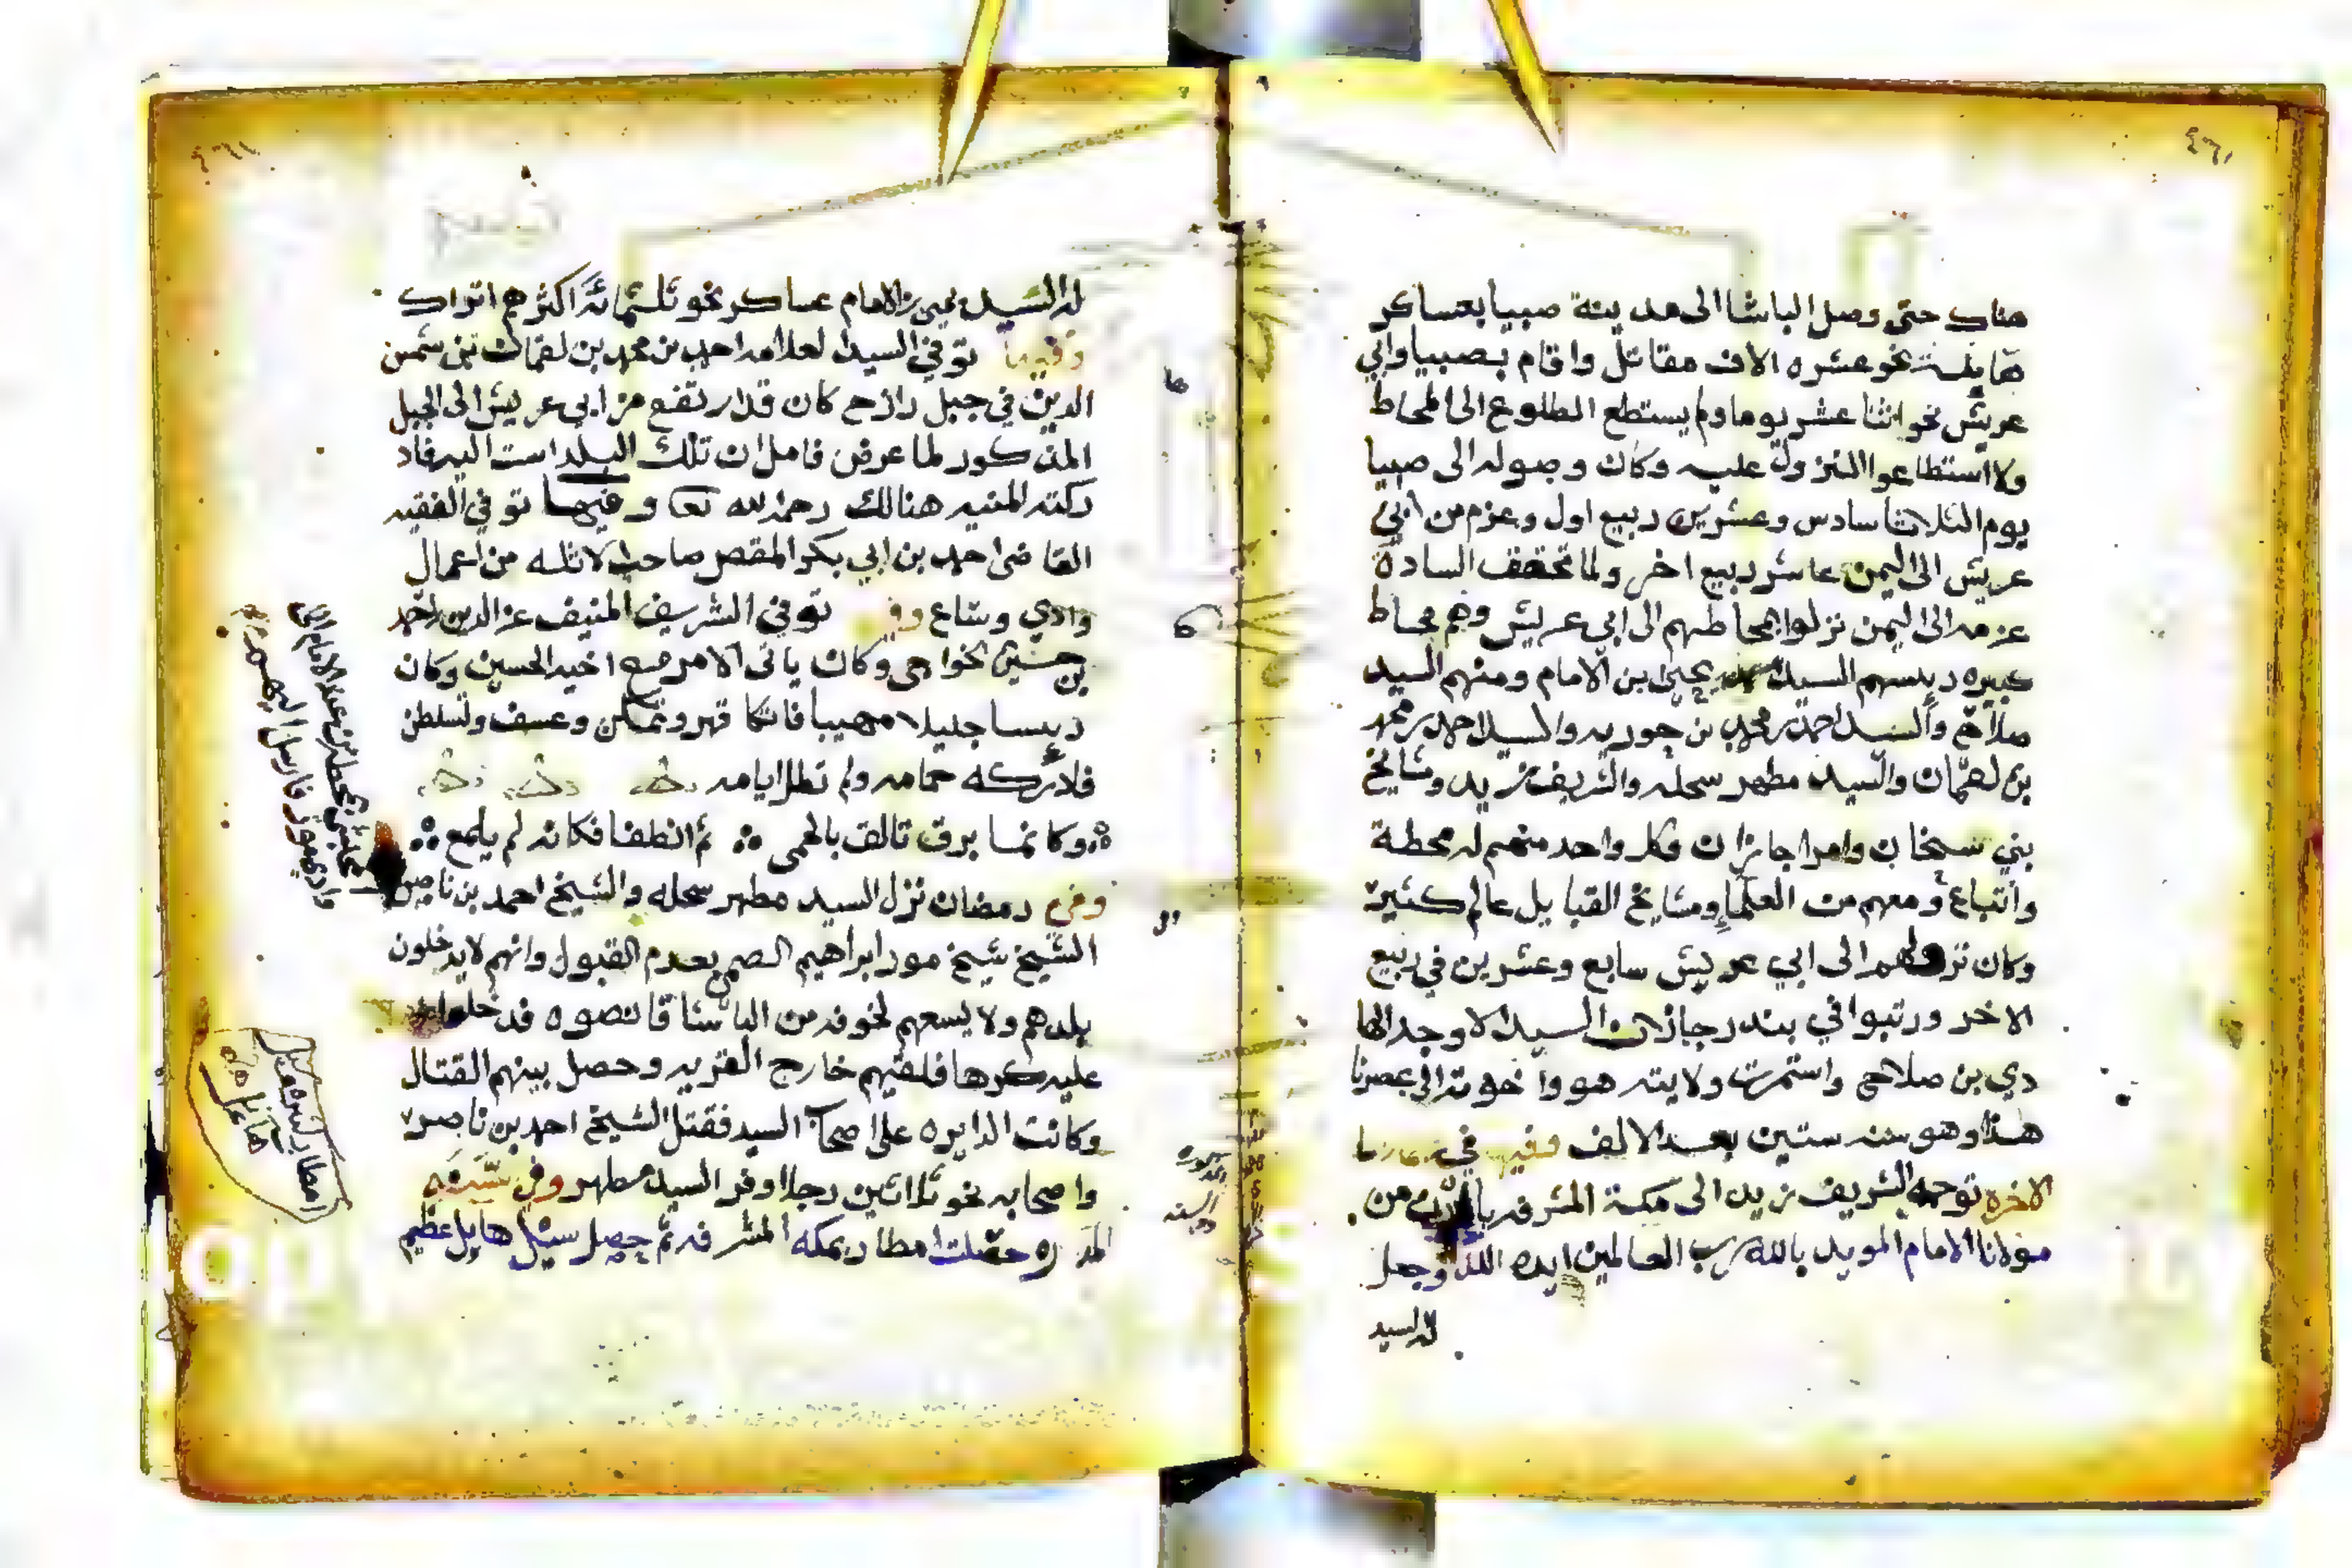 هناك حتى وصل الباشا الى مدينة صبيا بعساكر
هايلة نحو عشره الاف مقاتل واقام بصبيا وابي
عريش نحو اثنا عشر يوما ولم يستطع الطلوع الى المحاط
ولا استطاعوا النزول عليه وكان وصوله الى صبيا
يوم الثلاثا سادس وعشرين ربيع اول وعزم من ابي
عريش الى اليمن عاشر ربيع اخر ولما تحقق السادة
عزمه الى اليمن نزلوا بمحاطهم الى ابي عريش وهم محاط
كبيره رييسهم السيد يحيى بن الامام ومنهم السيد
صلاح والسيد احمد بن محمد بن حوريه والسيد احمد بن محمد
بن لقمان والسيد مطهر سحله والشريف زيد ومشايخ
بني شيخان وامرا جازان وكل واحد منهم له محطة
واتباع ومعهم من العلما ومشايخ القبايل عالم كثير
وكان نزولهم الى ابي عريش سابع وعشرين في ربيع
الاخر ورتبوا في بندر جازان السيد الاوجد الها
دي بن صلاح واستمرت ولايته هو واخوته الى عصرنا
هذا وهو سنه ستين بعد الالف وفيها في
الاخره توجه الشريف زيد الى مكة المشرفه من
مولانا الامام المويد بالله رب العالمين ايده الله وجعل
له السيد
له السيد يحيى بن الامام عساكر نحو ثلثمائة اكثرهم اتراك
وفيها توفي السيد العلامه احمد بن محمد بن لقمان بن شمس
الدين في جبل رازح كان قد ارتفع من ابي عريش الى الجبل
المذكور لما عرض فامل ان تلك البلد است اليه فاد
ركته المنيه هنالك رحمه الله تعا وفيها توفي الفقيه
القاضى احمد بن ابي بكر المقصر صاحب الاثله من اعمال
وادي وساع وفي توفي الشريف المنيف عز الدين احمد
بن حسين الخواجي وكان ياتى الامر مع اخيه الحسين وكان
رييسا جليلا مهيبا فاتكا قهر وتمكن وعسف وتسلطن
فلا تركه حمامه ولم تطل ايامه
وكانما برق تالق بالحمى ثم انطفا فكانه لم يلمع
وفي رمضان نزل السيد مطهر سحله والشيخ احمد بن ناصر
الشيخ شيخ مور ابراهيم بعدم القبول وانهم لا يدخلون
بلدهم ولا يسعهم لخوفه من الباشا قانصوه فدخلوا
عليه كرها فلقيهم خارج القريه وحصل بينهم القتال
وكانت الدايره على اصحاب السيد فقتل الشيخ احمد بن ناصر
واصحابه نحو ثلاثين رجلا وفر السيد مطهر وفي سنه
حصلت امطار بمكه المشرفه ثم حصل سيل هايل عظيم